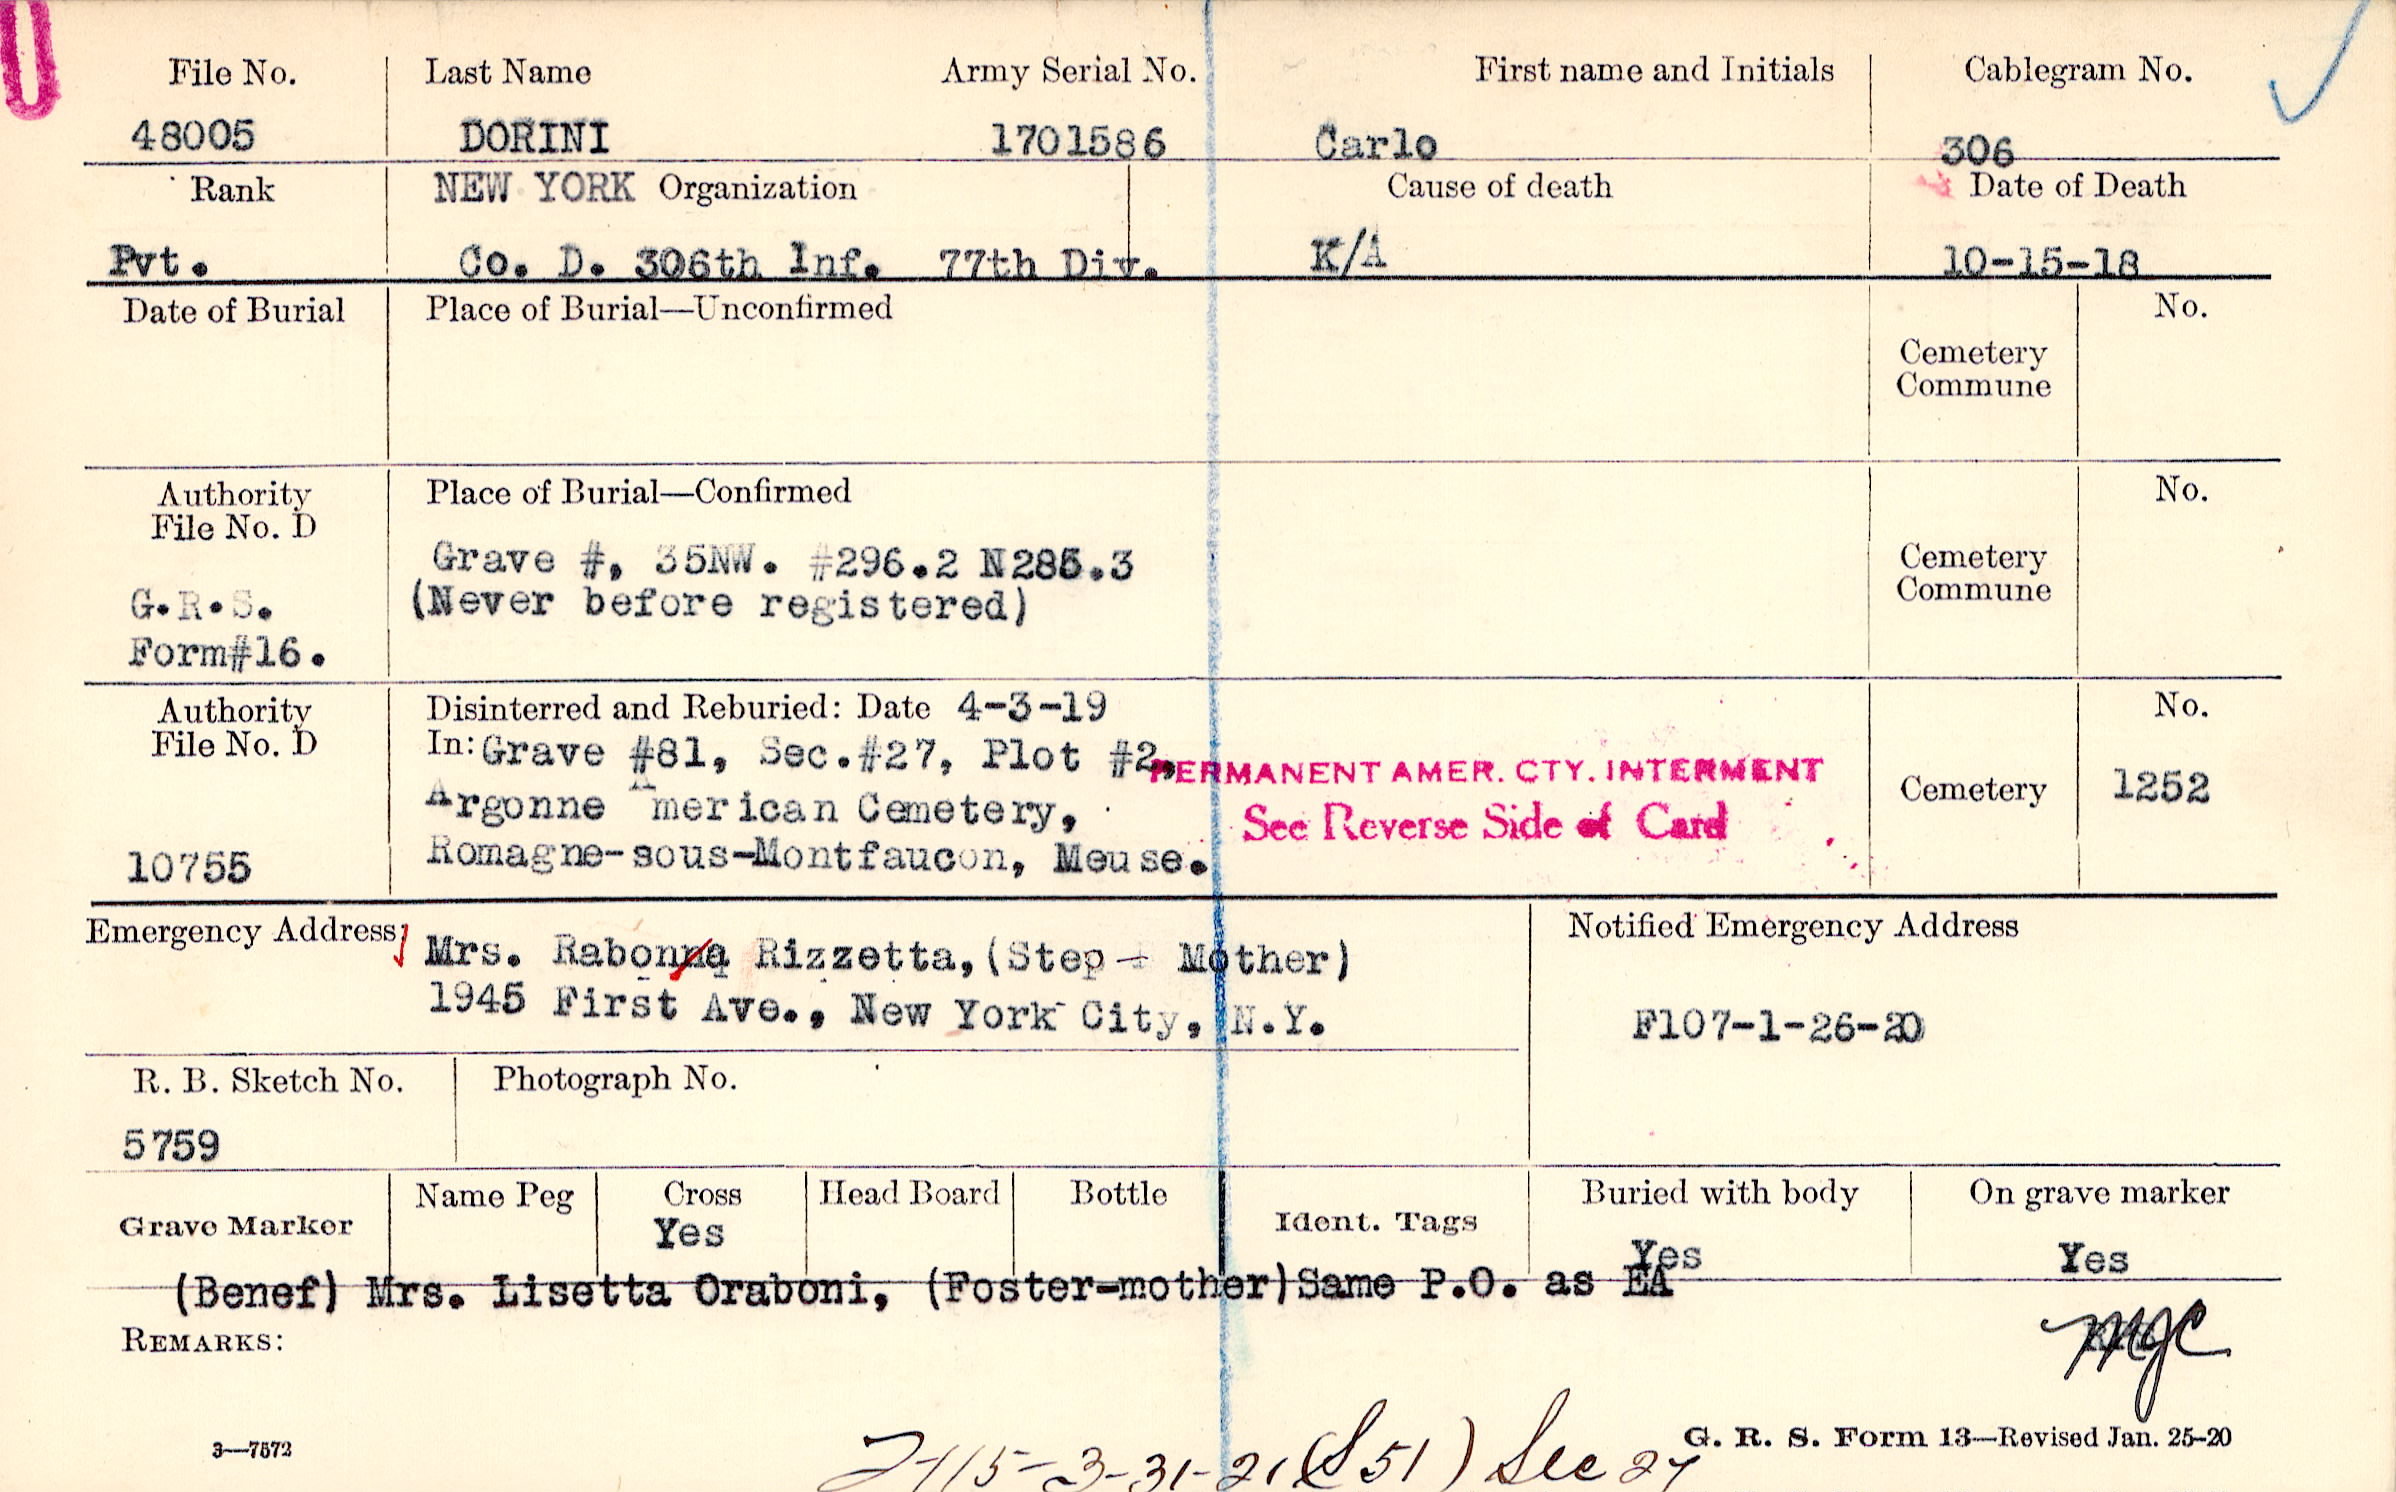 File No. Last Name Army Serial No. First name and Initials Cablegram No.
48005 DORINI 1701586 Carlo 306
Rank NEW YORK Organization Cause of death Date of Death
Pvt. Co. D. 306th Inf. 77th Div. K/A 10-15-18
Date of Burial Place of Burial—Unconfirmed No.
Cemetery
Commune
Authority Place of Burial—Confirmed No.
File No. D
Grave #, 35NW. #296.2 N285.3 Cemetery
G.R.S. (Never before registered) Commune
Form#16.
Authority Disinterred and Reburied: Date 4-3-19 No.
File No. D In: Grave #81, Sec.#27, Plot #2,
PERMANENT AMER. CTY. INTERMENT
Argonne American Cemetery, See Reverse Side of Card Cemetery 1252
10755 Romagne-sous-Montfaucon, Meuse.
Emergency Address: Mrs. Rabonna Rizzetta, (Step - Mother) Notified Emergency Address
1945 First Ave., New York City, N.Y. F107-1-26-20
R. B. Sketch No. Photograph No.
5759
Name Peg Cross Head Board Bottle Buried with body On grave marker
Grave Marker Yes Ident. Tags Yes Yes
(Benef) Mrs. Lisetta Oraboni, (Foster-mother) Same P.O. as EA
REMARKS: MJC
3—7572 G. R. S. Form 13—Revised Jan. 25-20
3-31-21 (S51) Sec 27